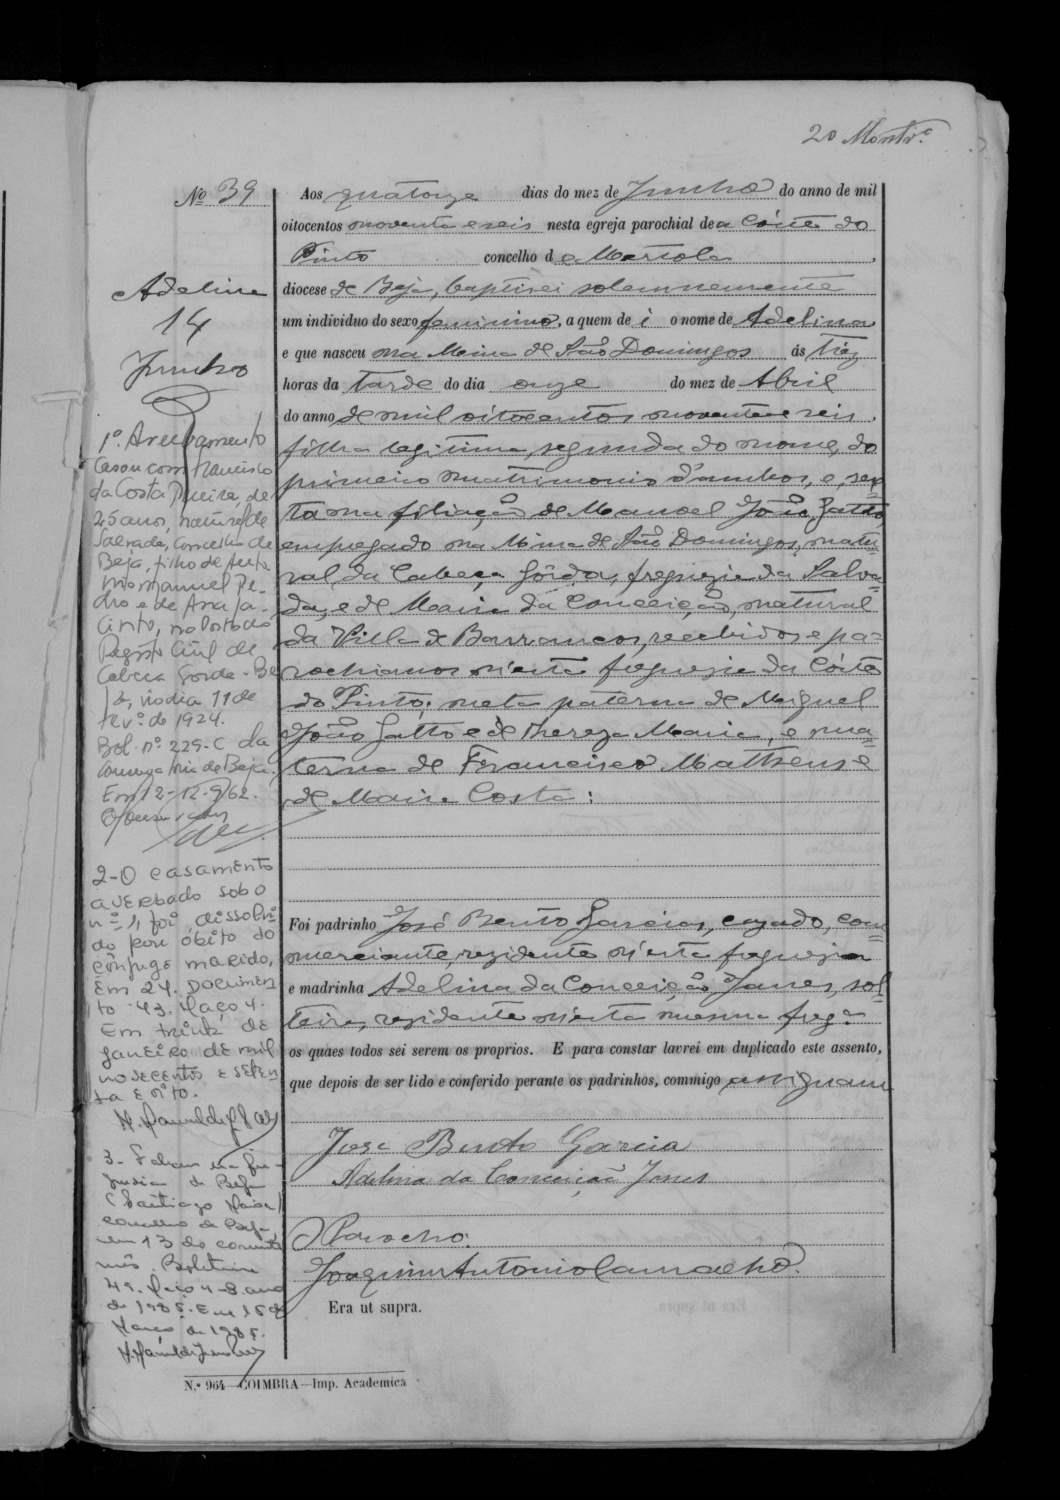 20 Montr.º
Nº 39
Adelina
14
Junho
1º. Averbamento
Casou com Francisco
da Costa Pereira, de
25 anos, natural de
Salvada, concelho de
Beja, filho de Anto
nio Manuel Pe-
dro e de Ana Ja-
cinto, no Posto do
Registo Civil de
Cabeça Gorda - Be
ja, no dia 11 de
fev.º de 1924.
Bol. nº 229-C da
Conservatória de Beja.
Em 12-12-962.
2-O casamento
averbado sob o
nº 1, foi dissolvi
do por óbito do
cônjuge marido,
em 24. Documen
to 43. Maço 4.
Em trinta de
Janeiro de mil
novecentos e seten
ta e oito.
3- Faleceu na fre-
guesia de Beja
(Santiago Maior)
concelho de Beja,
em 13 do corrente
mês. Boletim
49. Maço 4-B. ano
de 1985. Em 15 de
Março de 1985.
Aos quatorze dias do mez de Junho do anno de mil
oitocentos noventa e seis nesta egreja parochial de a Córte do
Pinto concelho de Mertola
diocese de Beja, baptisei solemnemente
um individuo do sexo feminino, a quem dei o nome de Adelina
e que nasceu na Mina de São Domingos ás trez
horas da tarde do dia onze do mez de Abril
do anno de mil oitocentos noventa e seis,
filha legitima, segunda do nome, do
primeiro matrimonio d'ambos, e sex
ta na filiação de Manoel João Gatto,
empregado na Mina de São Domingos, natu-
ral da Cabeça Górda, freguezia da Salva
da, e de Maria da Conceição, natural
da Villa de Barrancos, recebidos e pa-
rochianos n'esta freguezia da Córte
do Pinto; neta paterna de Miguel
João Gatto e de Thereza Maria, e ma-
terna de Francisco Matheus e
de Maria Costa:
Foi padrinho José Bento Garcia, cazado, com
merciante, rezidente n'esta freguezia
e madrinha Adelina da Conceição Janes, sol-
teira, rezidente n'esta mesma freg.ª
os quaes todos sei serem os proprios. E para constar lavrei em duplicado este assento,
que depois de ser lido e conferido perante os padrinhos, commigo assignam
Jose Bento Garcia
Adelina da Conceição Janes
O Parocho:
Joaquim Antonio Camacho.
Era ut supra.
N.º 964—COIMBRA—Imp. Academica